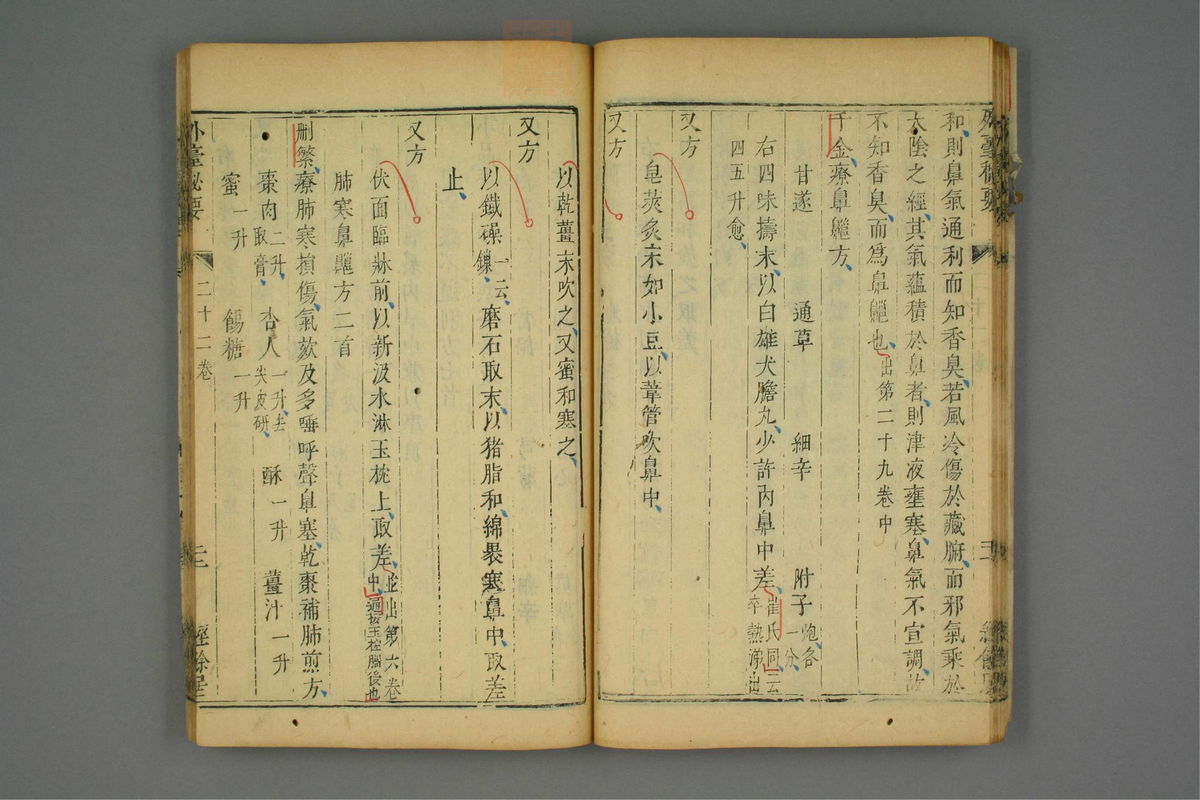 和則鼻氣通利而知香臭若風冷傷於藏腑而邪氣乘於
太陰之經其氣蘊積於鼻者則津液壅塞鼻氣不宣調故
不知香臭而為鼻齆也出第二十九卷中
千金療鼻齆方
甘遂 通草 細辛 附子炮各一分
右四味擣末以白雄犬膽丸少許內鼻中差崔氏同云卒熱涕出
四五升愈
又方
皂莢炙末如小豆以葦管吹鼻中
又方
以乾薑末吹之又蜜和塞之
又方
以鐵磉鏁一云磨石取末以猪脂和綿裹塞鼻中取差
止
又方
伏面臨牀前以新汲水淋玉枕上取差並出第六卷中
肺寒鼻齆方二首
刪繁療肺寒損傷氣欬及多唾呼聲鼻塞乾棗補肺煎方
棗肉二升取膏 杏人一升去尖皮研 酥一升 薑汁一升
蜜一升 餳糖一升
外臺祕要 二十二卷 三 經餘居